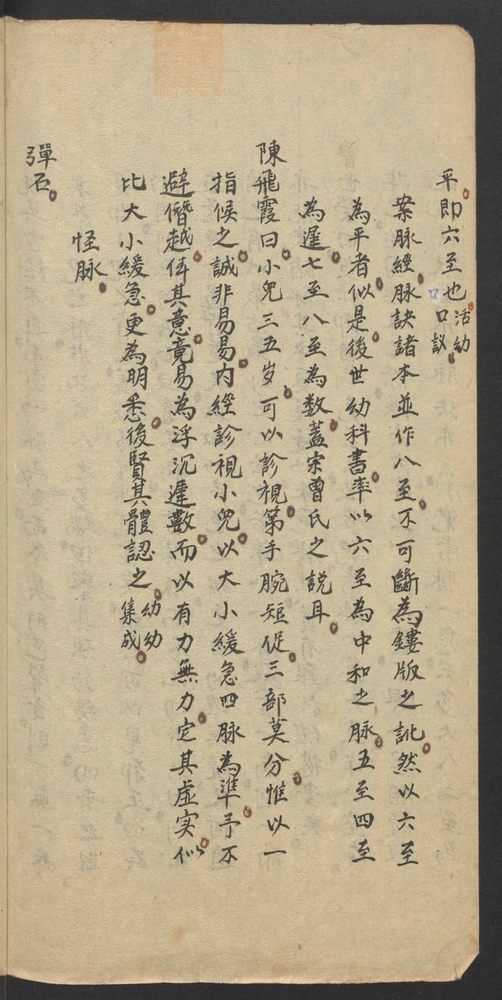 平即六至也活幼口議
案脉經脉訣諸本並作八至不可斷為鏤版之訛然以六至
為平者似是後世幼科書率以六至為中和之脉五至四至
為遲七至八至為数蓋宗曾氏之説耳
陳飛霞曰小兒三五岁可以診視第手腕短促三部莫分惟以一
指候之誠非易易内經診視小兒以大小緩急四脉為準予不
避僭越体其意竟易為浮沉遲數而以有力無力定其虚实似
比大小緩急更為明悉後賢其體認之幼幼集成
怪脉
彈石